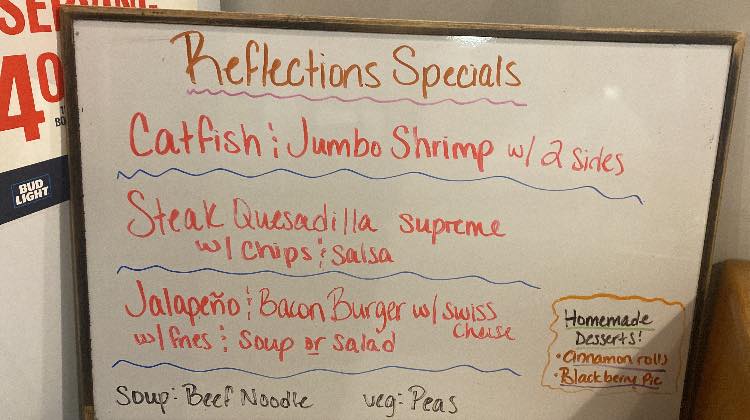 SERVING
40
BUD
LIGHT
Reflections Specials
Catfish & Jumbo Shrimp w/ 2 sides
Steak Quesadilla supreme
w/ chips & salsa
Jalapeño & Bacon Burger w/ swiss
cheese
w/ fries & soup or salad
Homemade
Desserts!
• Cinnamon rolls
• Blackberry Pie
Soup: Beef Noodle veg: Peas